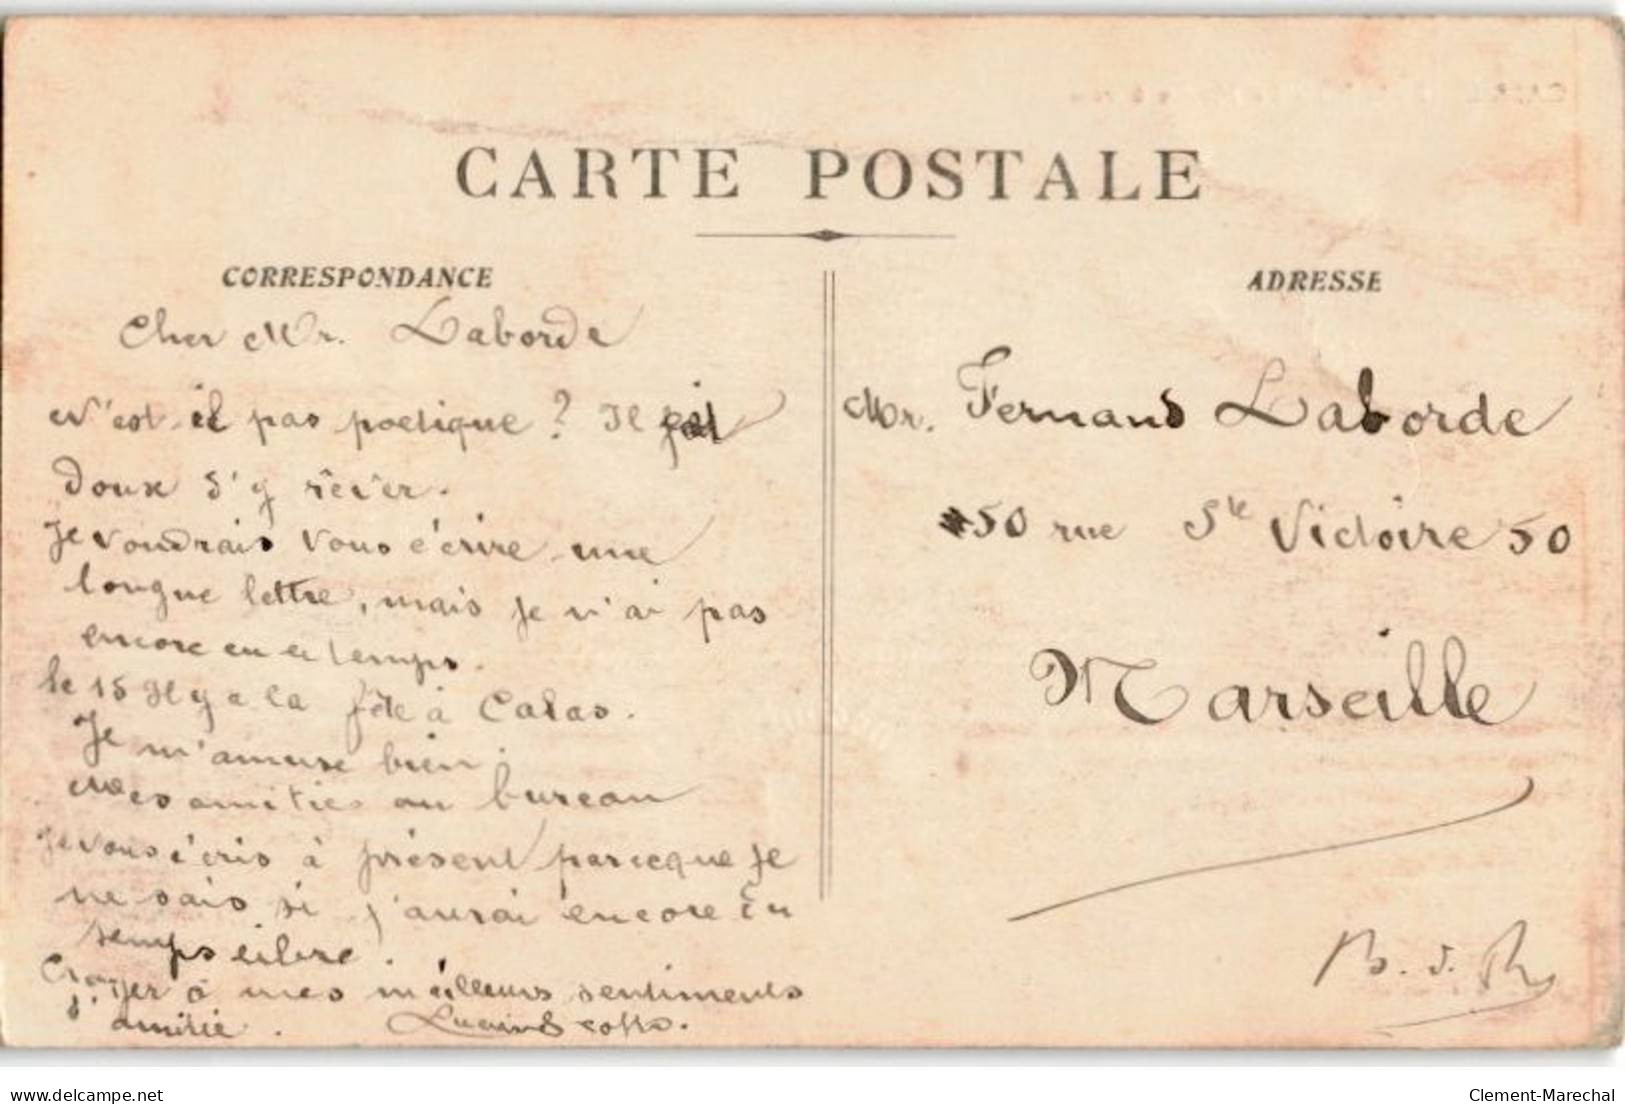 CARTE POSTALE
CORRESPONDANCE
Cher Mr. Laborde
N'est-il pas poetique ? Il fait
doux d'y rêver.
Je voudrais vous écrire une
longue lettre, mais je n'ai pas
encore eu le temps.
le 15 Il y a la fête à Calas.
Je m'amuse bien.
Mes amitiés au bureau
Je vous écris à présent parceque je
ne sais si j'aurai encore du
temps libre.
Croyez à mes meilleurs sentiments
d'amitié. Lucien
ADRESSE
Mr. Fernand Laborde
50 rue Ste Victoire 50
Marseille
B. d. R
delcampe.net
Clement-Marechal